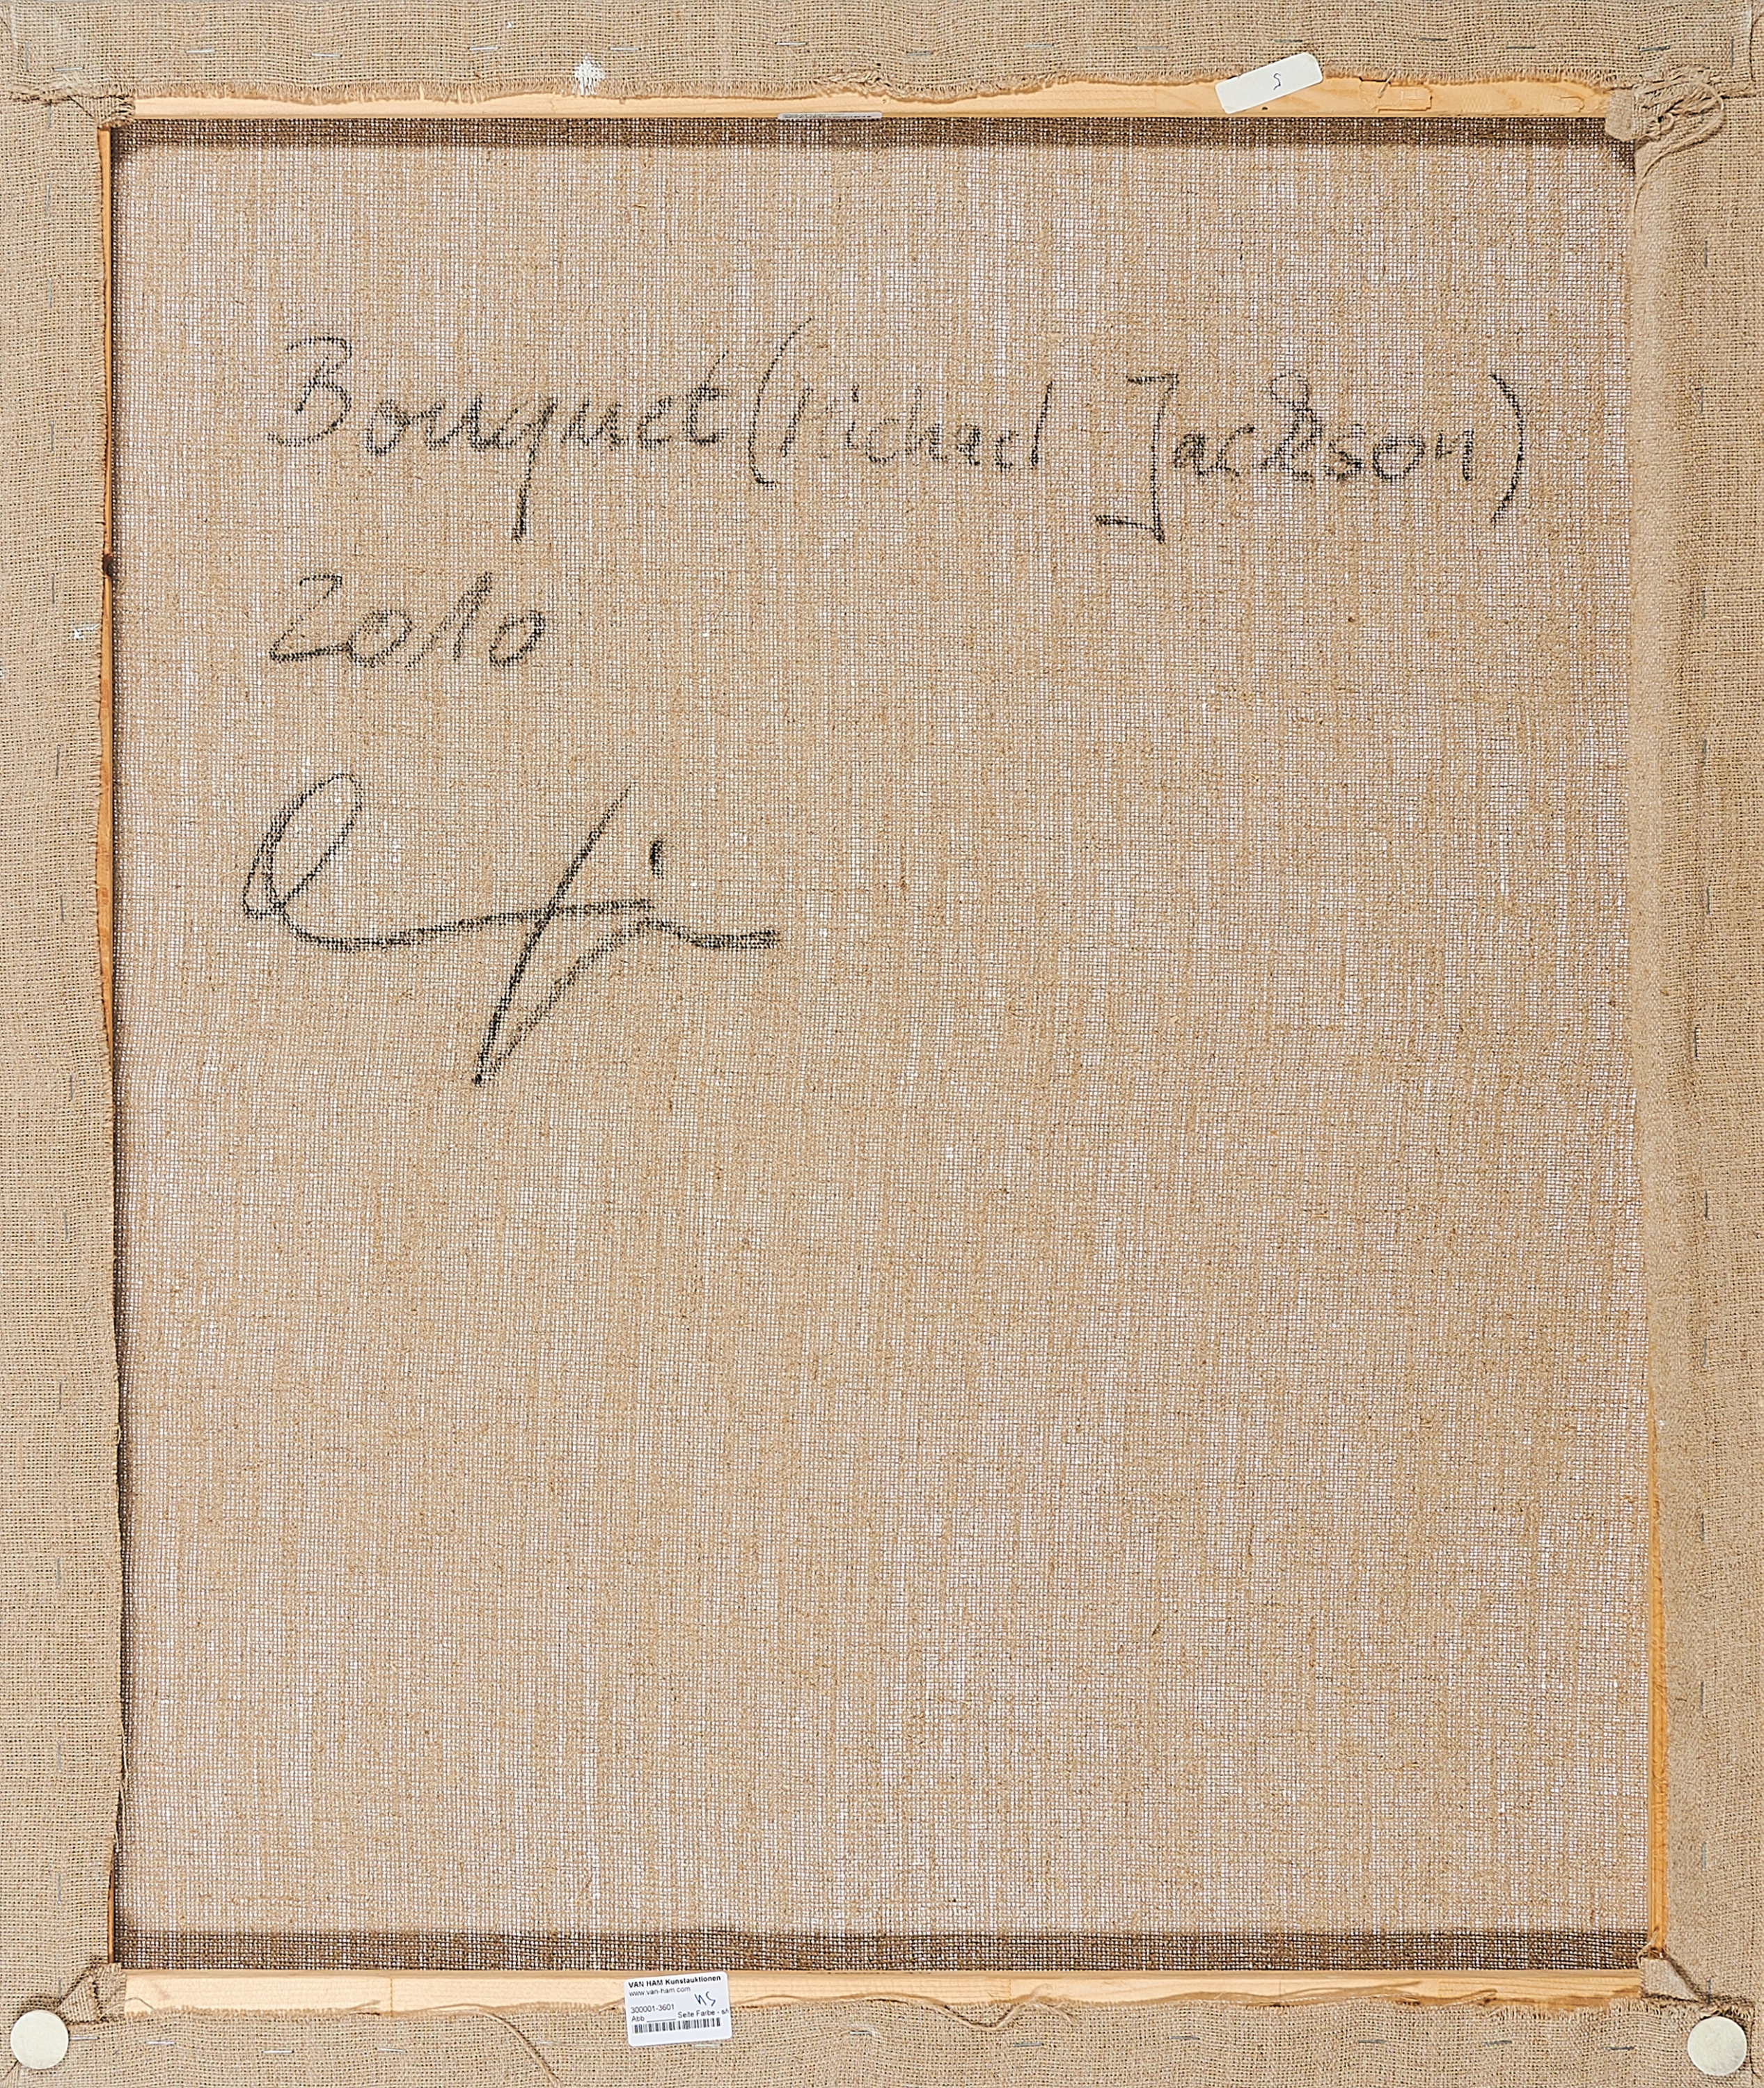 S
Bouquet (Michael Jackson)
2010
VAN HAM Kunstauktionen
www.van-ham.com
NS
300001-3601
Abb. Seite Farbe - s/